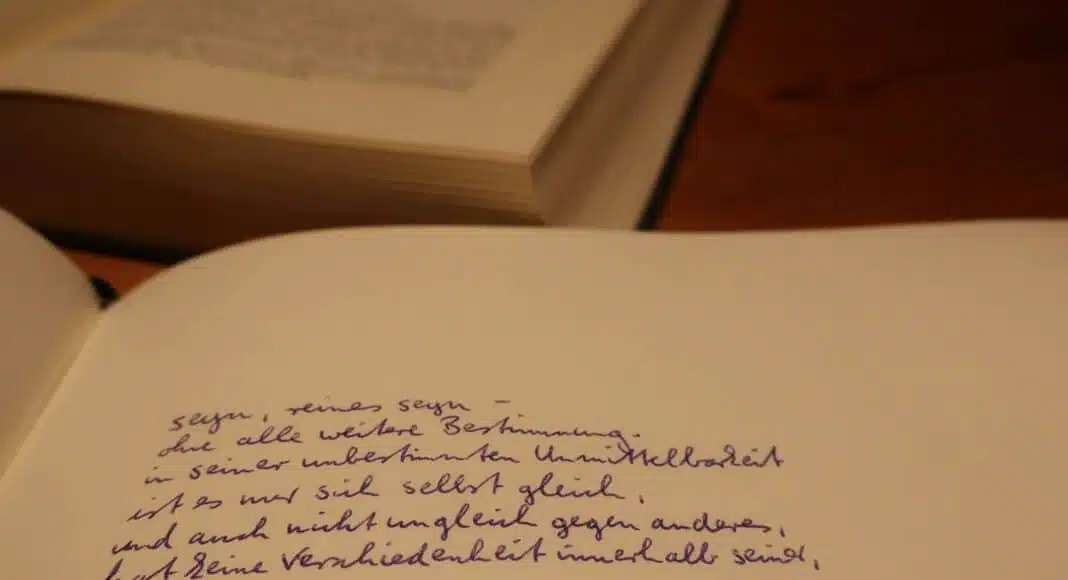 seyn, reines seyn –
ohne alle weitere Bestimmung.
in seiner unbestimmten Unmittelbarkeit
ist es nur sich selbst gleich,
und auch nicht ungleich gegen anderes,
hat keine Verschiedenheit innerhalb seiner,